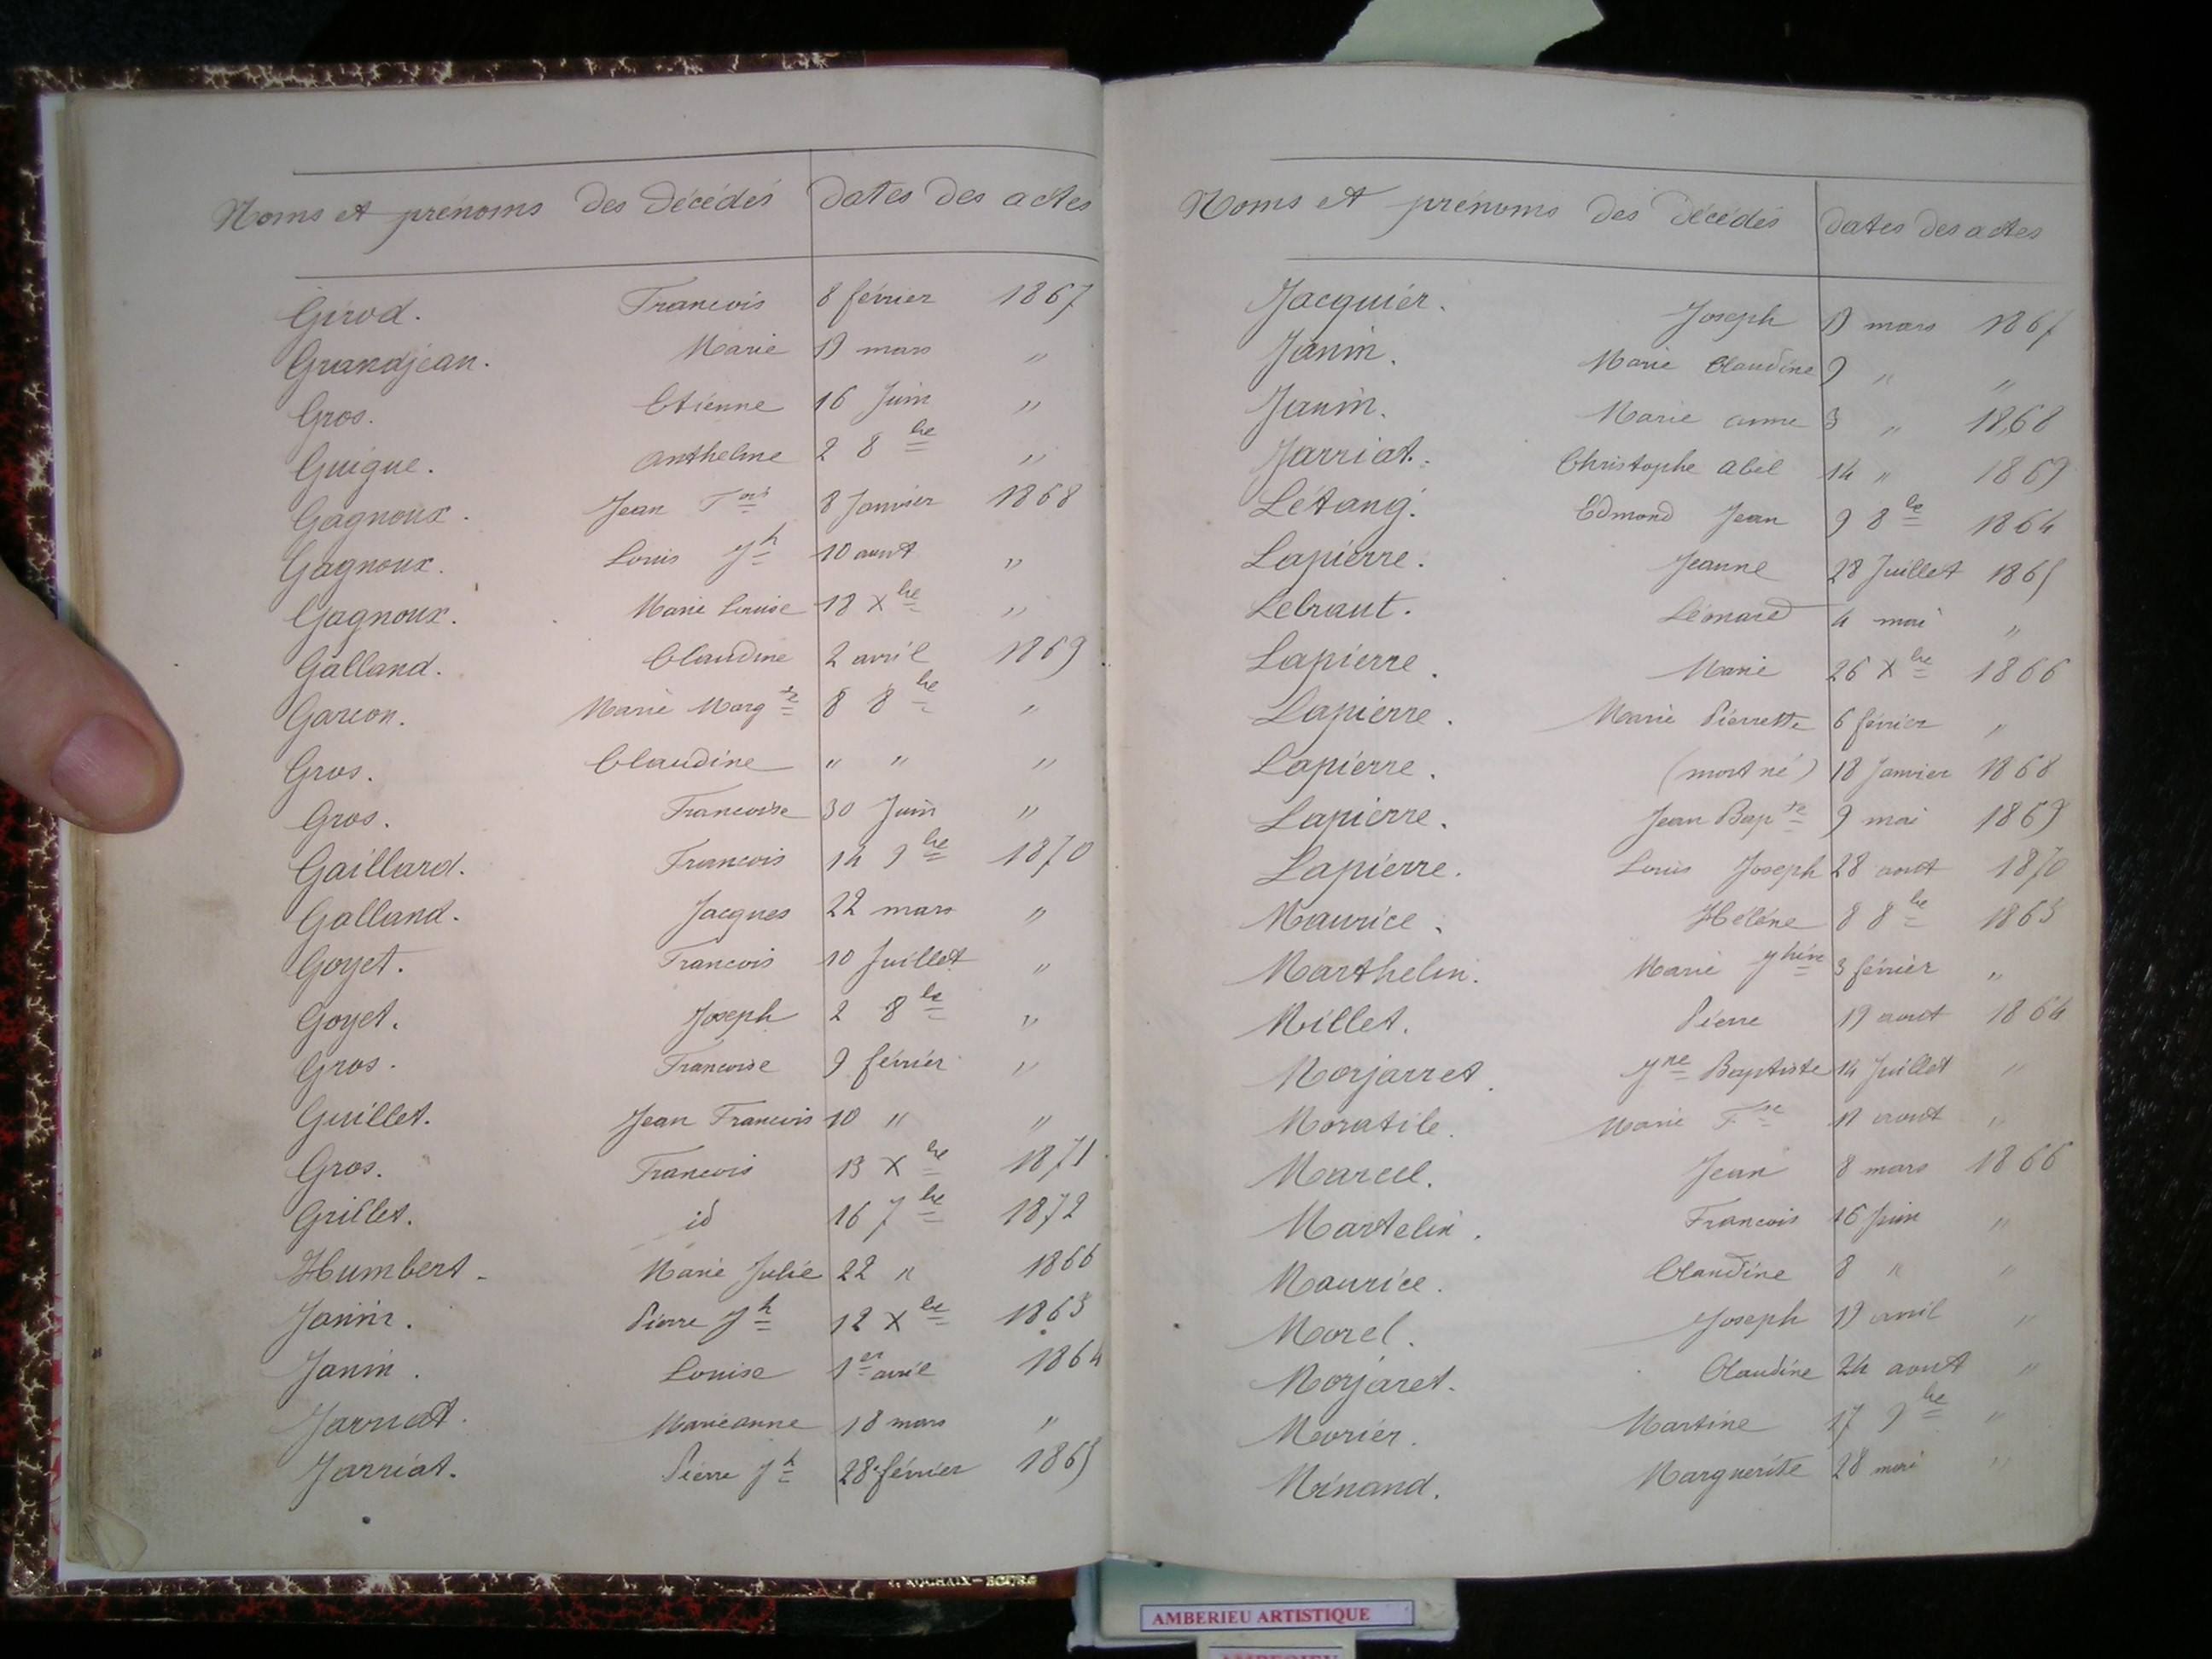 Noms et prénoms des décédés dates des actes
Girod. Francois 8 février 1867
Grandjean. Marie 19 mars "
Gros. Etienne 16 Juin "
Guigue. Anthelme 2 8bre "
Gagnoux. Jean Fois 8 Janvier 1868
Gagnoux. Louis Jh 10 aout "
Gagnoux. Marie Louise 18 Xbre "
Galland. Claudine 2 avril 1869
Garcon. Marie Margte 8 8bre "
Gros. Claudine " " "
Gros. Francoise 30 Juin "
Gaillard. Francois 14 9bre 1870
Galland. Jacques 22 mars "
Goyet. Francois 10 Juillet "
Goyet. Joseph 2 8bre "
Gros. Francoise 9 février "
Guillet. Jean Francois 10 " "
Gros. Francois 13 Xbre 1871
Grillet. id 16 7bre 1872
Humbert. Marie Julie 22 " 1866
Janin. Pierre Jh 12 Xbre 1863
Janin. Louise 1er avril 1864
Jarriat. Marieanne 18 mars "
Jarriat. Pierre Jh 28 février 1865
Noms et prénoms des décédés dates des actes
Jacquier. Joseph 19 mars 1867
Janin. Marie Claudine 9 " "
Janin. Marie anne 3 " 1868
Jarriat. Christophe Abel 14 " 1869
Létang. Edmond Jean 9 8bre 1864
Lapierre. Jeanne 28 Juillet 1865
Lebraut. Léonard 4 mai "
Lapierre. Marie 26 Xbre 1866
Lapierre. Marie Pierrette 6 février "
Lapierre. (mort né) 18 Janvier 1868
Lapierre. Jean Bapte 9 mai 1869
Lapierre. Louis Joseph 28 aout 1870
Maurice. Hélène 8 8bre 1863
Marthelin. Marie Jhine 3 février "
Millet. Pierre 19 aout 1864
Morjarret. Jne Baptiste 14 Juillet "
Moratile. Marie Fse 11 aout "
Marcel. Jean 8 mars 1866
Martelin. Francois 16 Juin "
Maurice. Claudine 8 " "
Morel. Joseph 19 avril "
Morjaret. Claudine 24 aout "
Morier. Martine 17 9bre "
Minand. Marguerite 28 mai "
AMBERIEU ARTISTIQUE